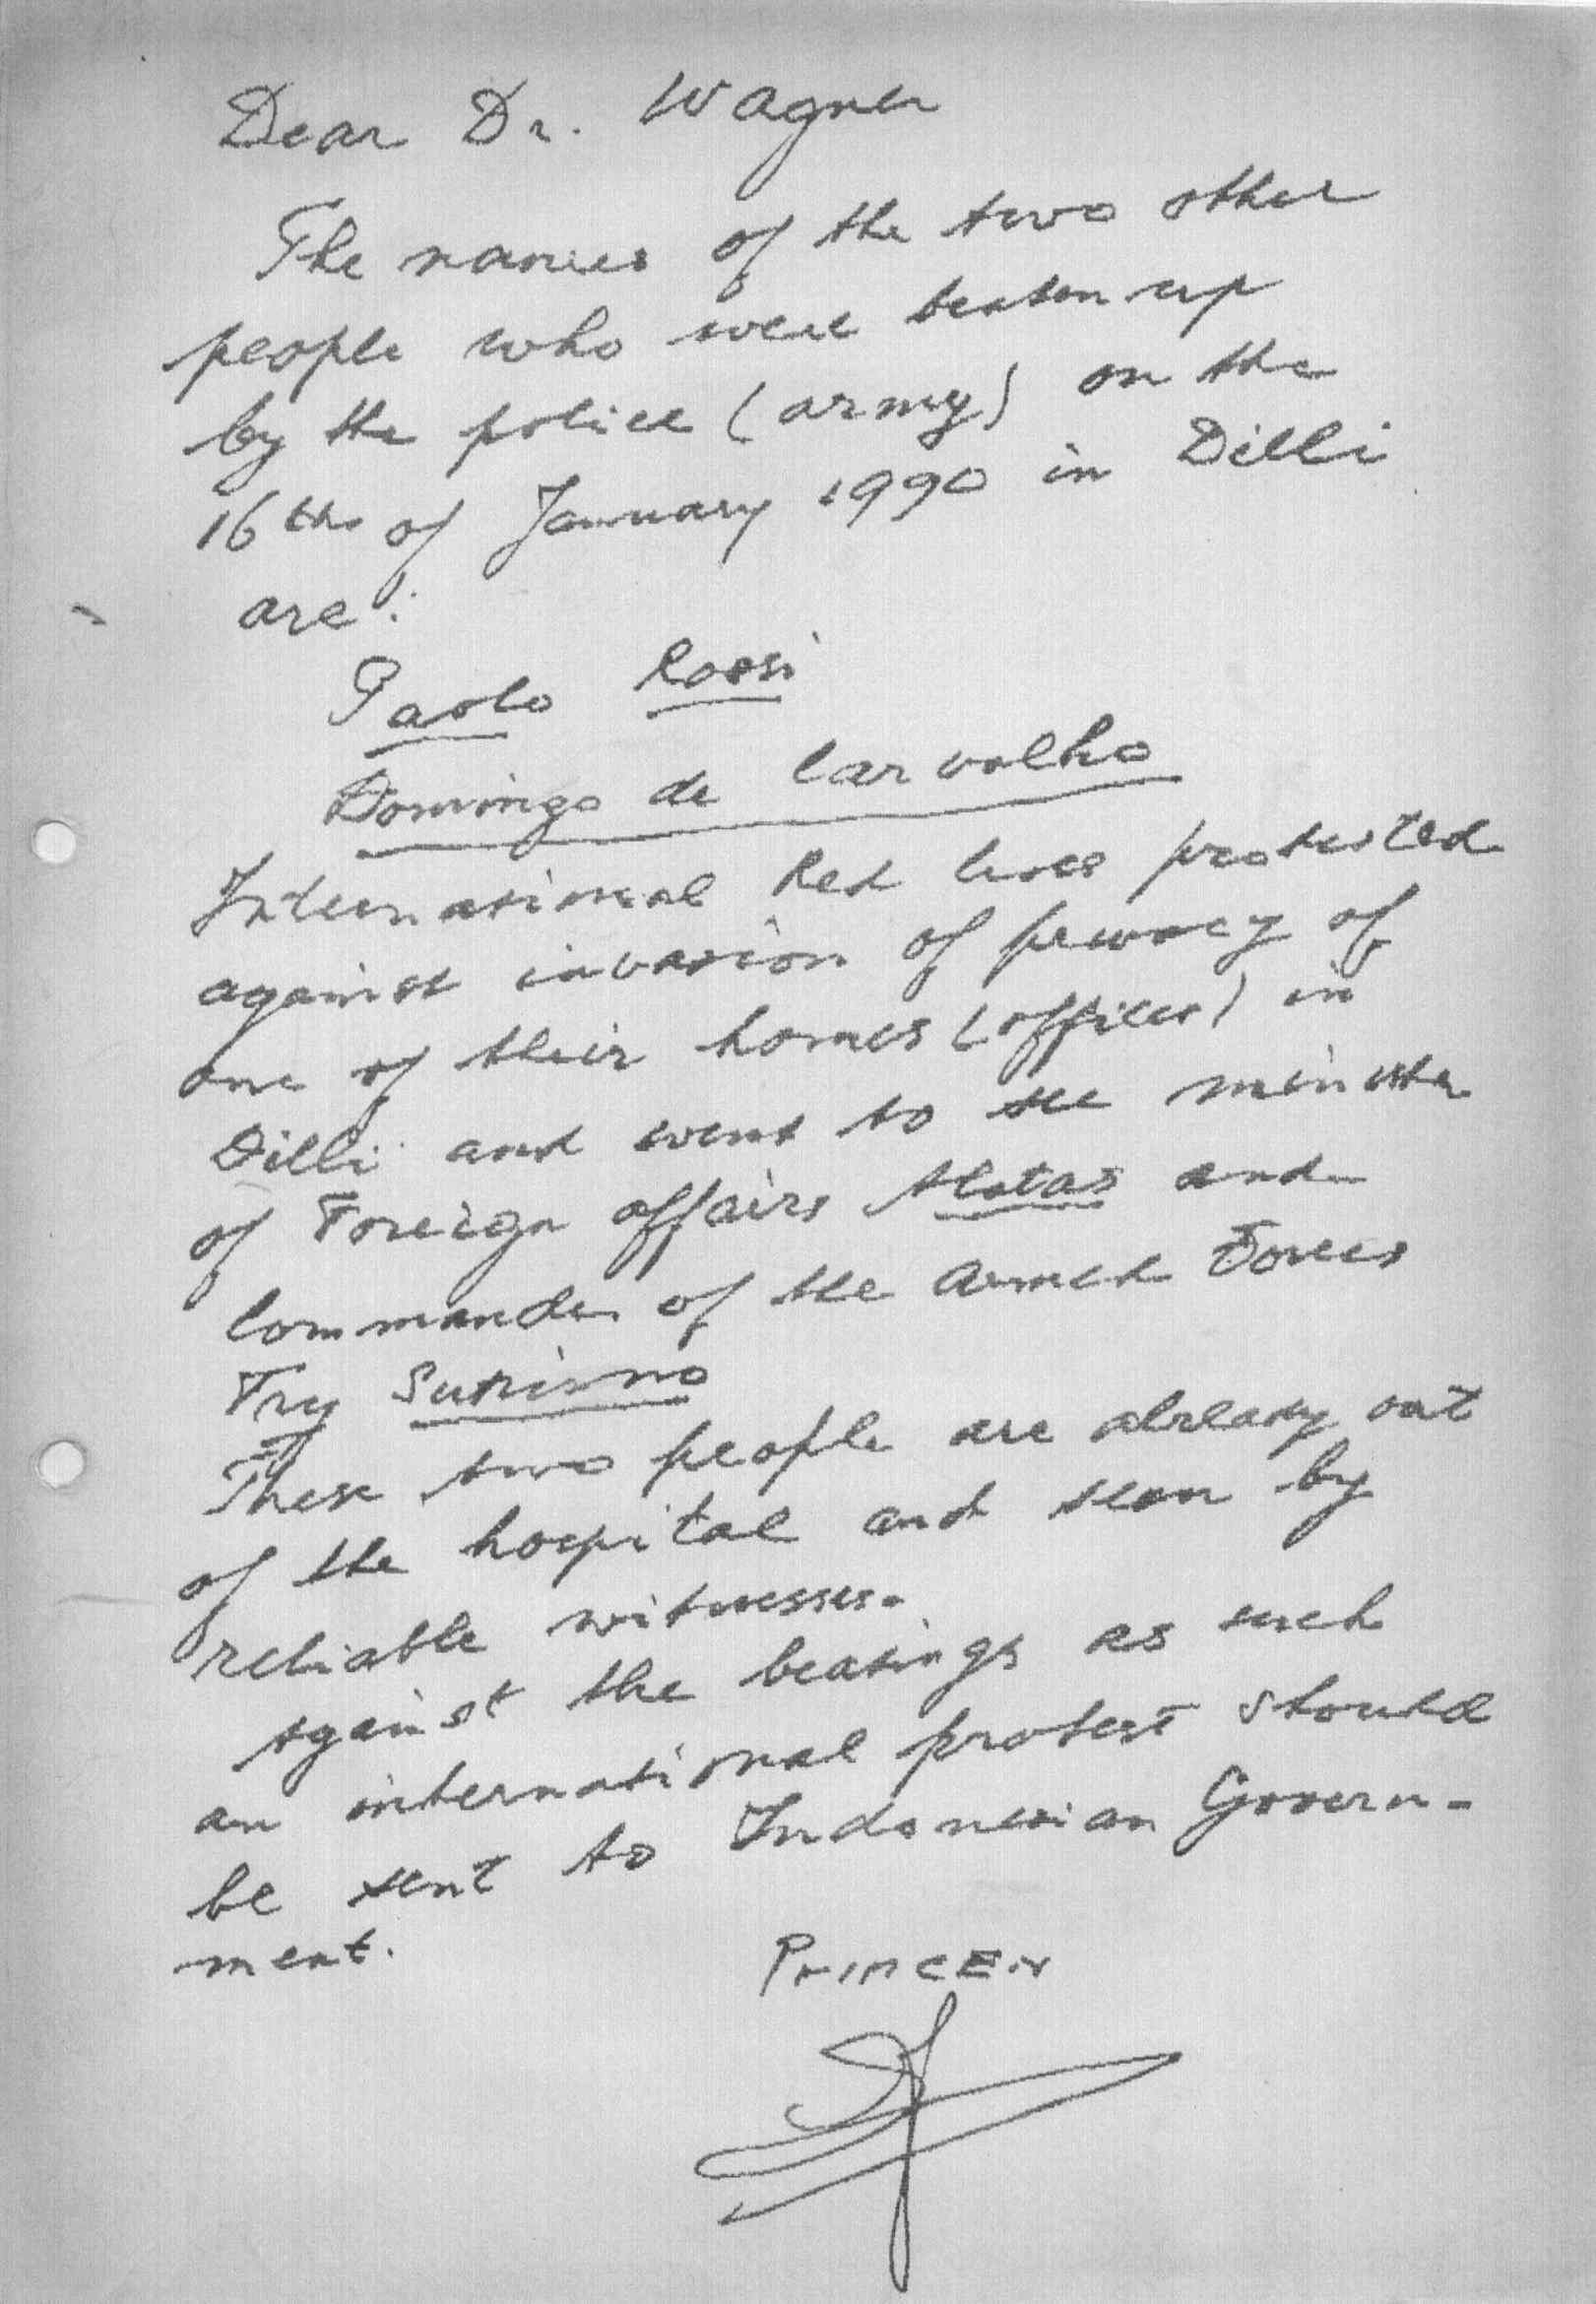 Dear Dr. Wagner
The names of the two other
people who were beaten up
by the police (army) on the
16th of January 1990 in Dilli
are:
Paolo Rossi
Domingo de Carvalho
International Red Cross protested
against invasion of privacy of
one of their homes (offices) in
Dilli and went to see minister
of Foreign affairs Alatas and
Commander of the Armed Forces
Try Sutrisno
These two people are already out
of the hospital and seen by
reliable witnesses.
Against the beatings as such
an international protest should
be sent to Indonesian Govern-
ment.
PRINCEN